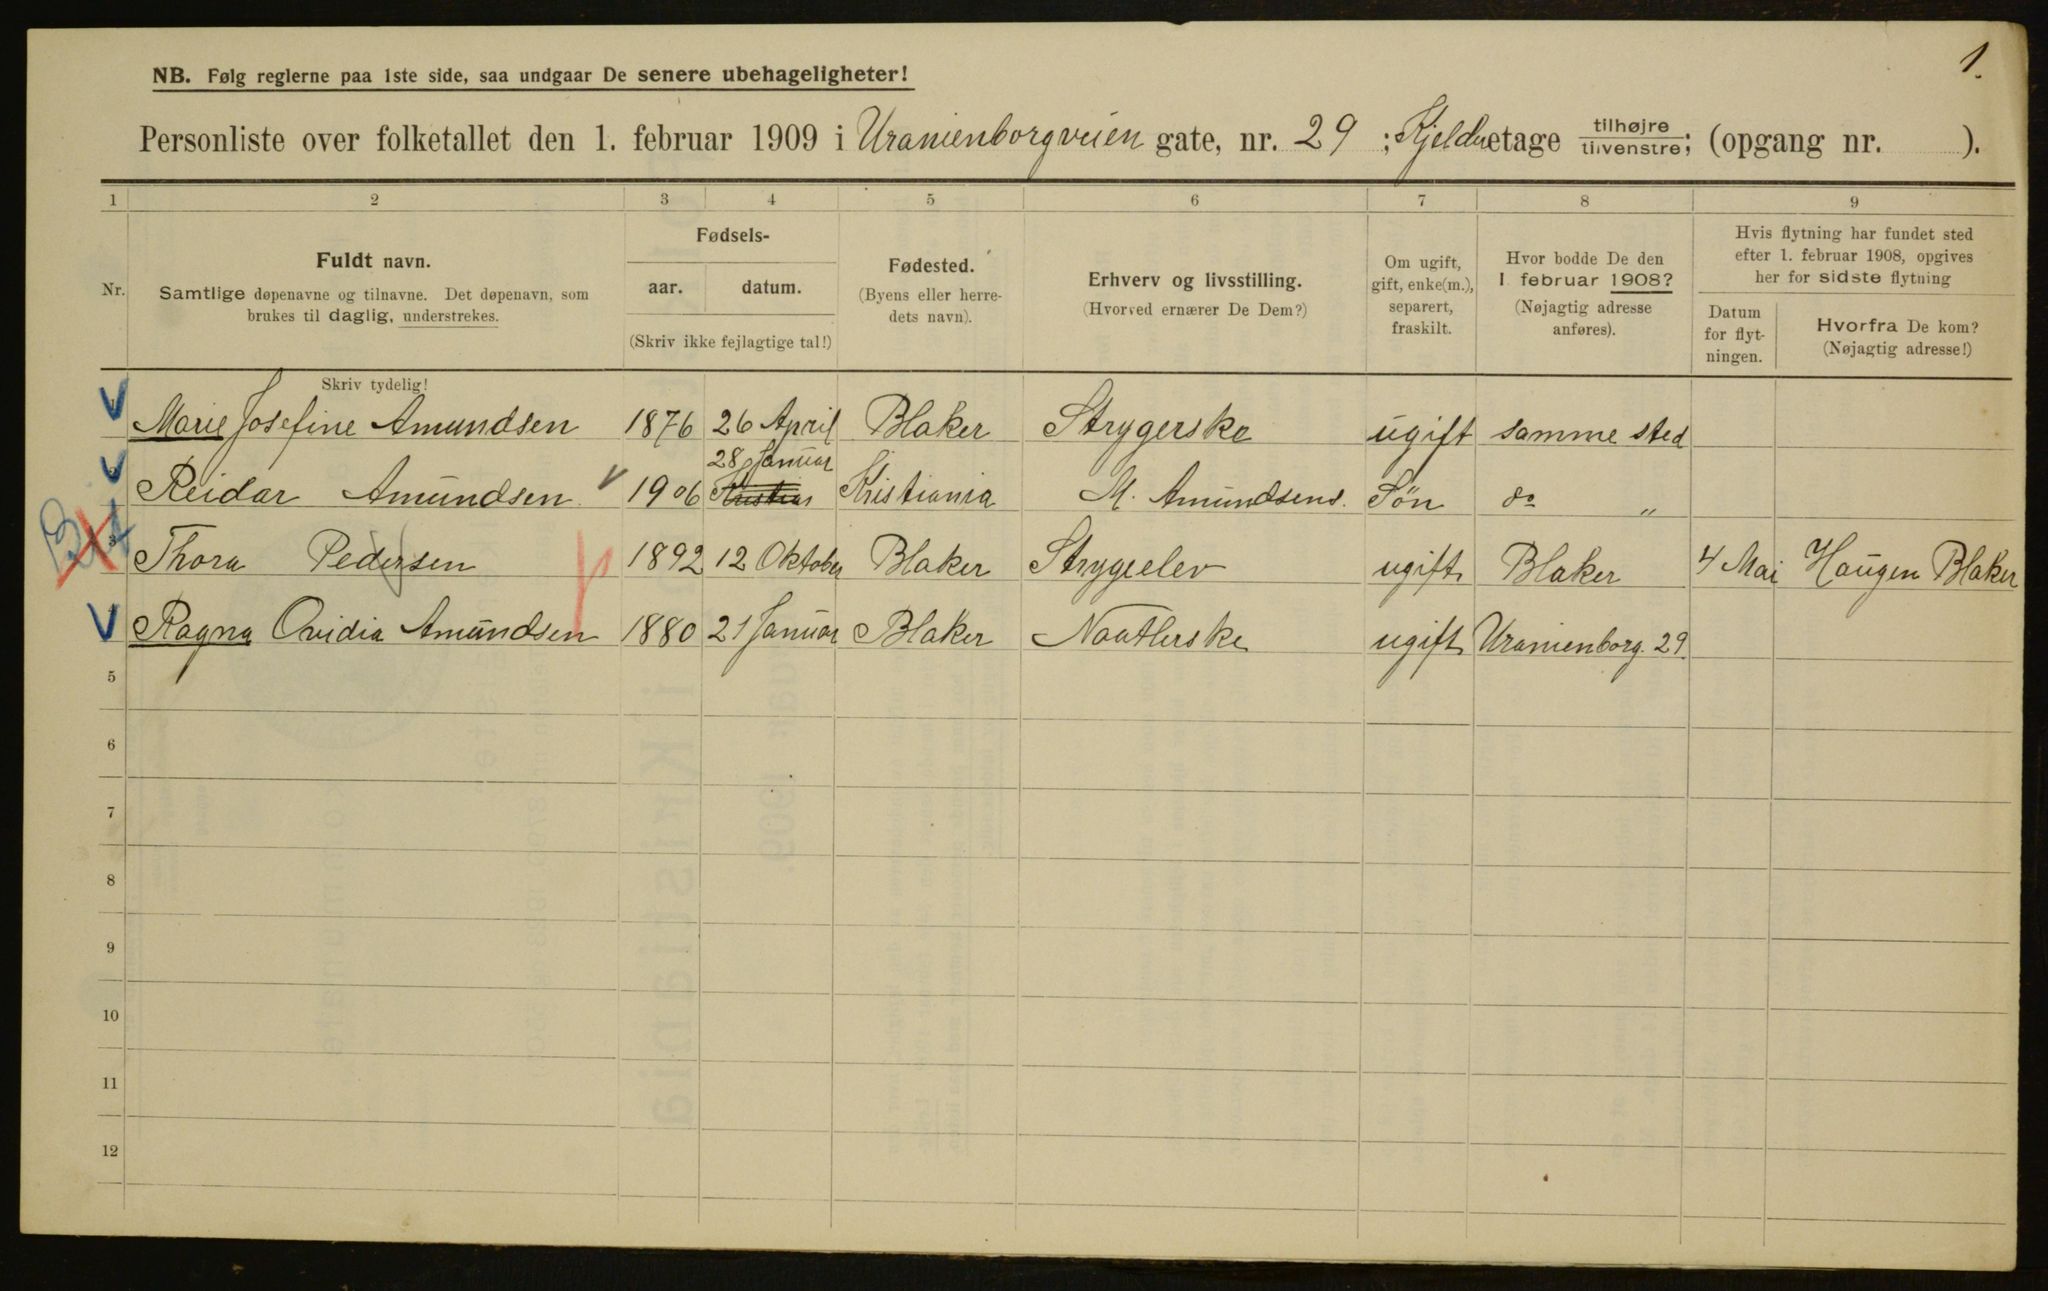 1.
NB. Følg reglerne paa 1ste side, saa undgaar De senere ubehageligheter!
Personliste over folketallet den 1. februar 1909 i Uranienborgveien gate, nr. 29 ; Kjelder etage tilhøjre tilvenstre; (opgang nr. ).
1 2 3 4 5 6 7 8 9
Nr.
Fuldt navn.
Samtlige døpenavne og tilnavne. Det døpenavn, som
brukes til daglig, understrekes.
Skriv tydelig!
Fødsels-
aar. datum.
(Skriv ikke fejlagtige tal!)
Fødested.
(Byens eller herre-
dets navn).
Erhverv og livsstilling.
(Hvorved ernærer De Dem?)
Om ugift,
gift, enke(m.),
separert,
fraskilt.
Hvor bodde De den
1 februar 1908?
(Nøjagtig adresse
anføres).
Hvis flytning har fundet sted
efter 1. februar 1908, opgives
her for sidste flytning
Datum
for flyt-
ningen.
Hvorfra De kom?
(Nøjagtig adresse!)
1 Marie Josefine Amundsen 1876 26 April Blaker Strygerske ugift samme sted
28 Januar
2 Reidar Amundsen 1906 Kristian Kristiania M. Amundsens Søn do „
3 Thora Pedersen 1892 12 Oktober Blaker Strygeelev ugift Blaker 4 Mai Haugen Blaker
Ragna Ovidia Amundsen 1880 21 Januar Blaker Naatlerske ugift Uranienborg. 29.
5
6
7
8
9
10
11
12